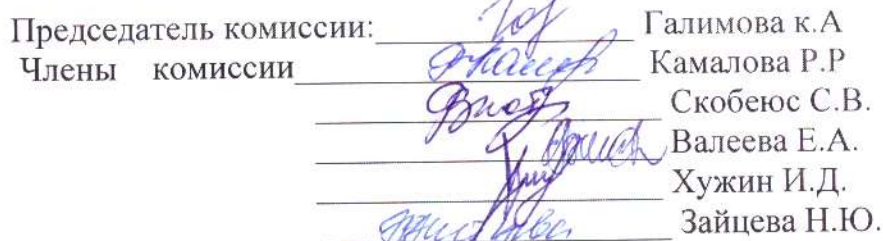 Председатель комиссии: Галимова к.А
Члены комиссии Камалова Р.Р
Скобеюс С.В.
Валеева Е.А.
Хужин И.Д.
Зайцева Н.Ю.